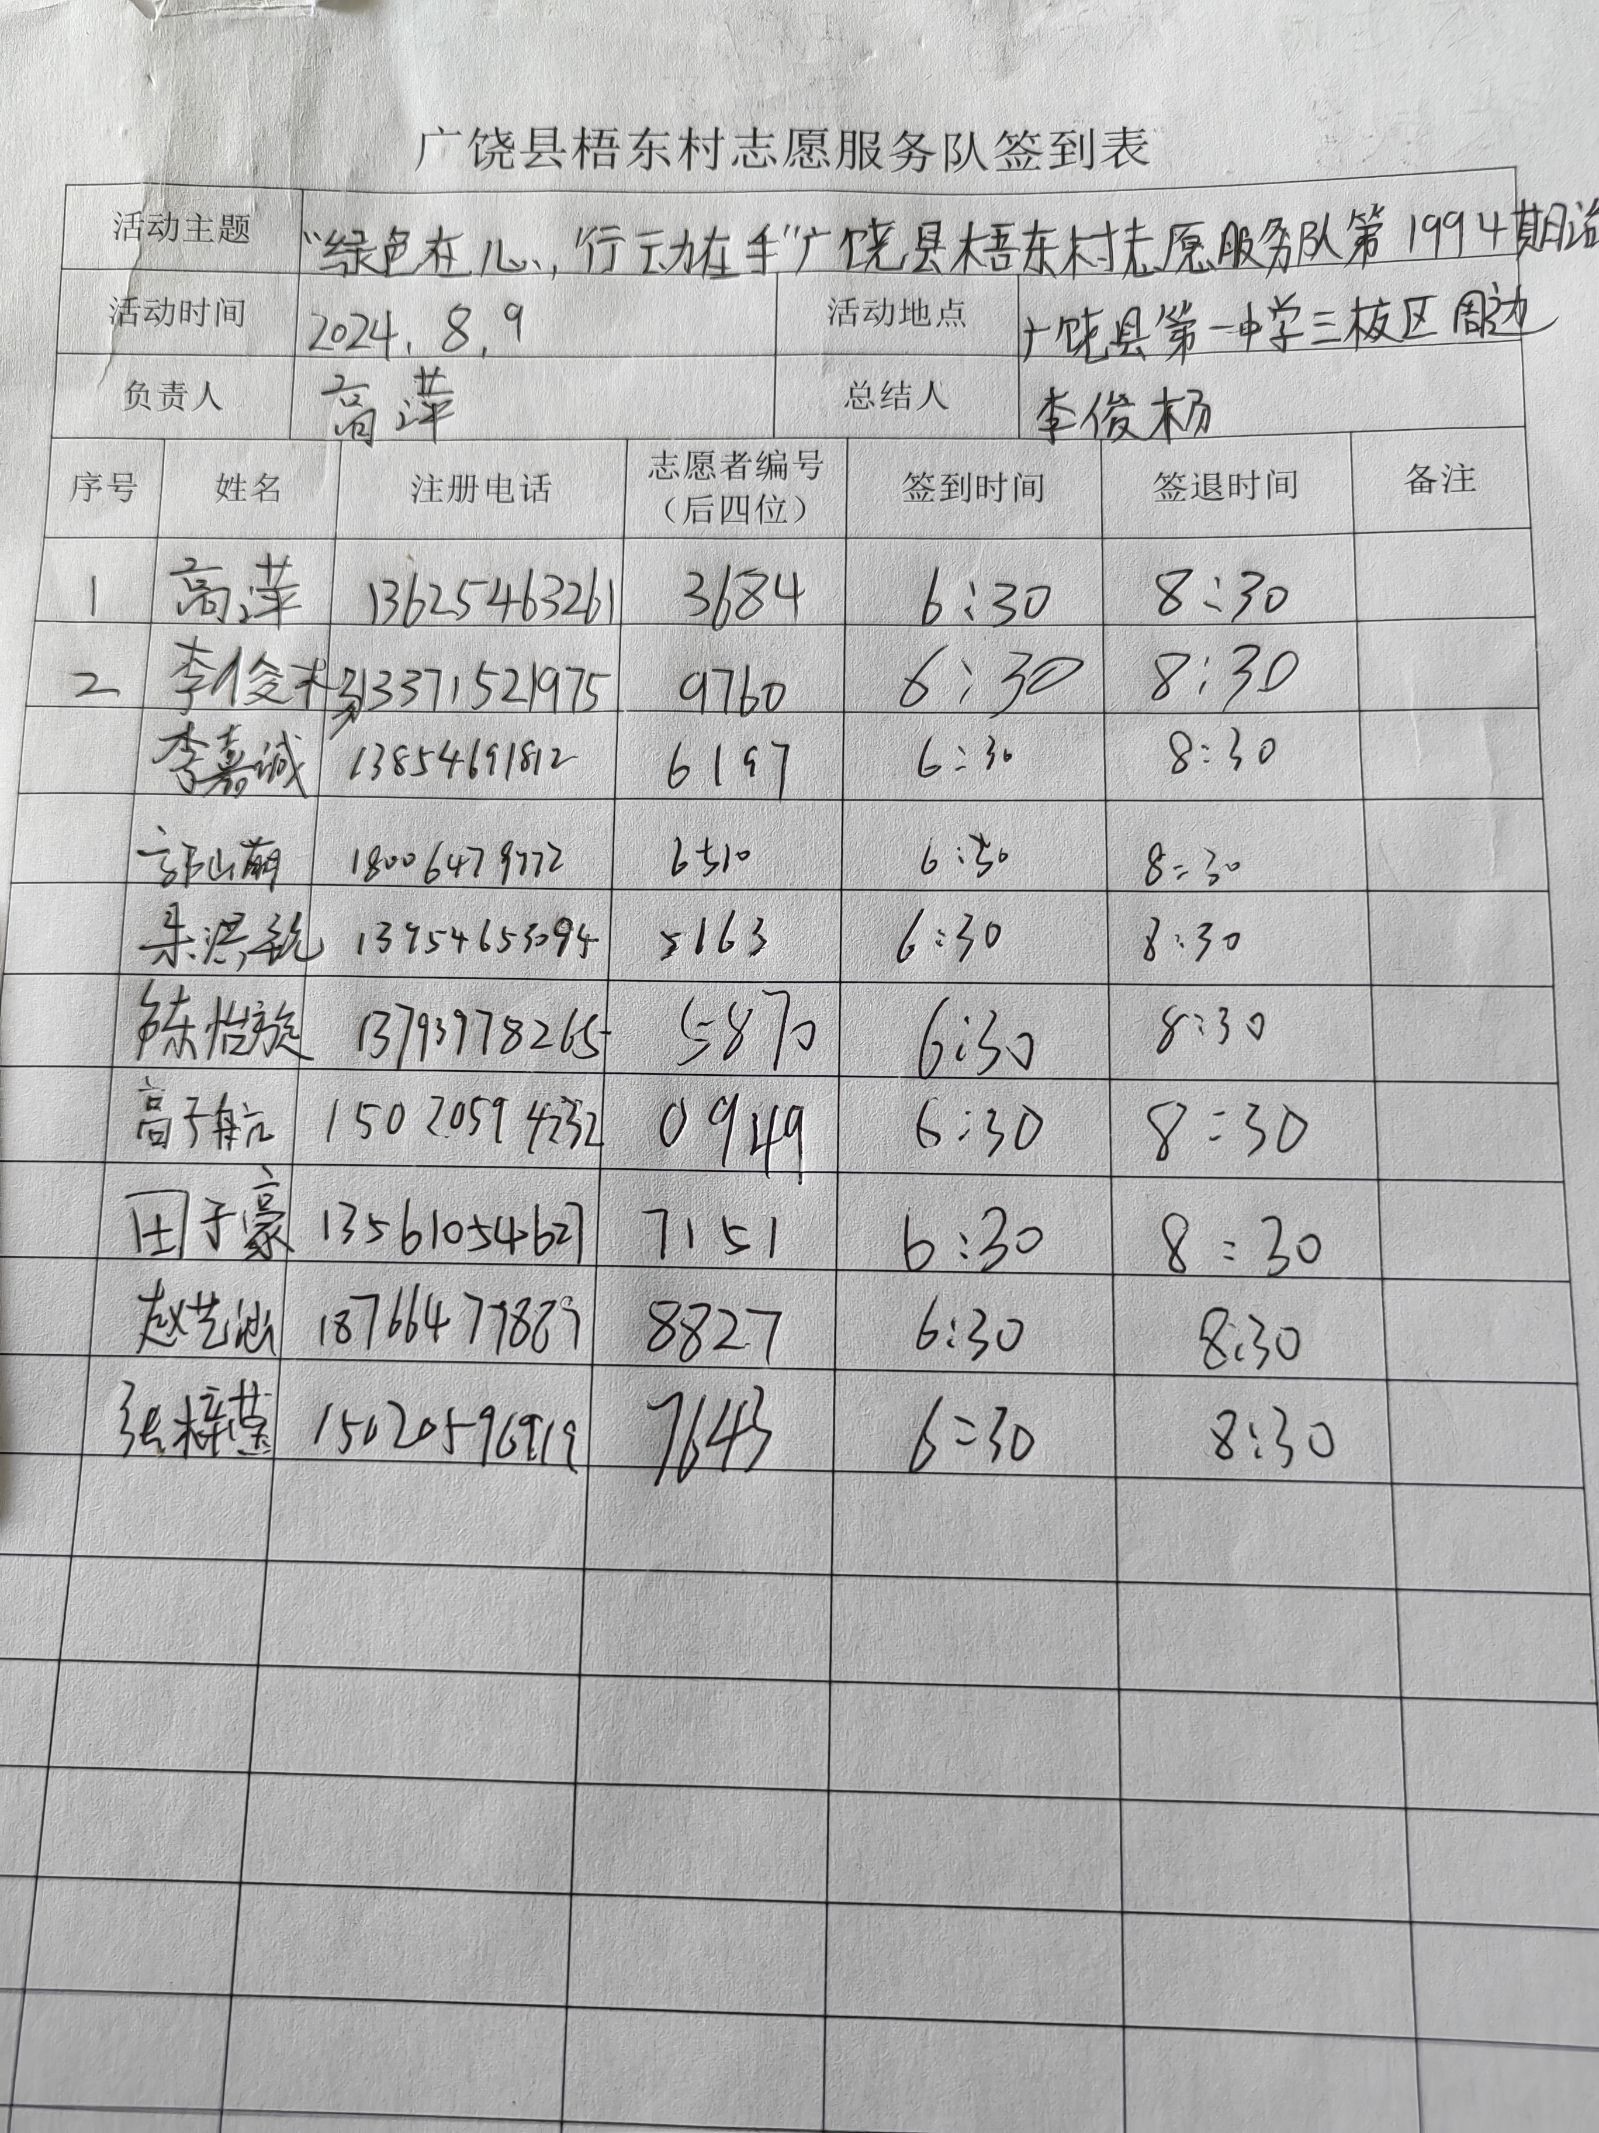 广饶县梧东村志愿服务队签到表
活动主题 "绿色在心,行动在手"广饶县梧东村志愿服务队第1994期
活动时间 2024.8.9 活动地点 广饶县第一中学三校区周边
负责人 高萍 总结人 李俊杨
序号 姓名 注册电话 志愿者编号（后四位） 签到时间 签退时间 备注
1 高萍 13625463261 3684 6:30 8:30
2 李俊杨 13371521975 9760 6:30 8:30
李嘉诚 13854691812 6197 6:30 8:30
郭山萌 18006479772 6510 6:30 8:30
朱洪 13954653094 5163 6:30 8:30
陈怡旋 13793978265 5870 6:30 8:30
高于航 15020594232 0949 6:30 8:30
田于豪 13561054627 7151 6:30 8:30
赵艺涵 18766479889 8827 6:30 8:30
张梓 15020596919 7643 6:30 8:30